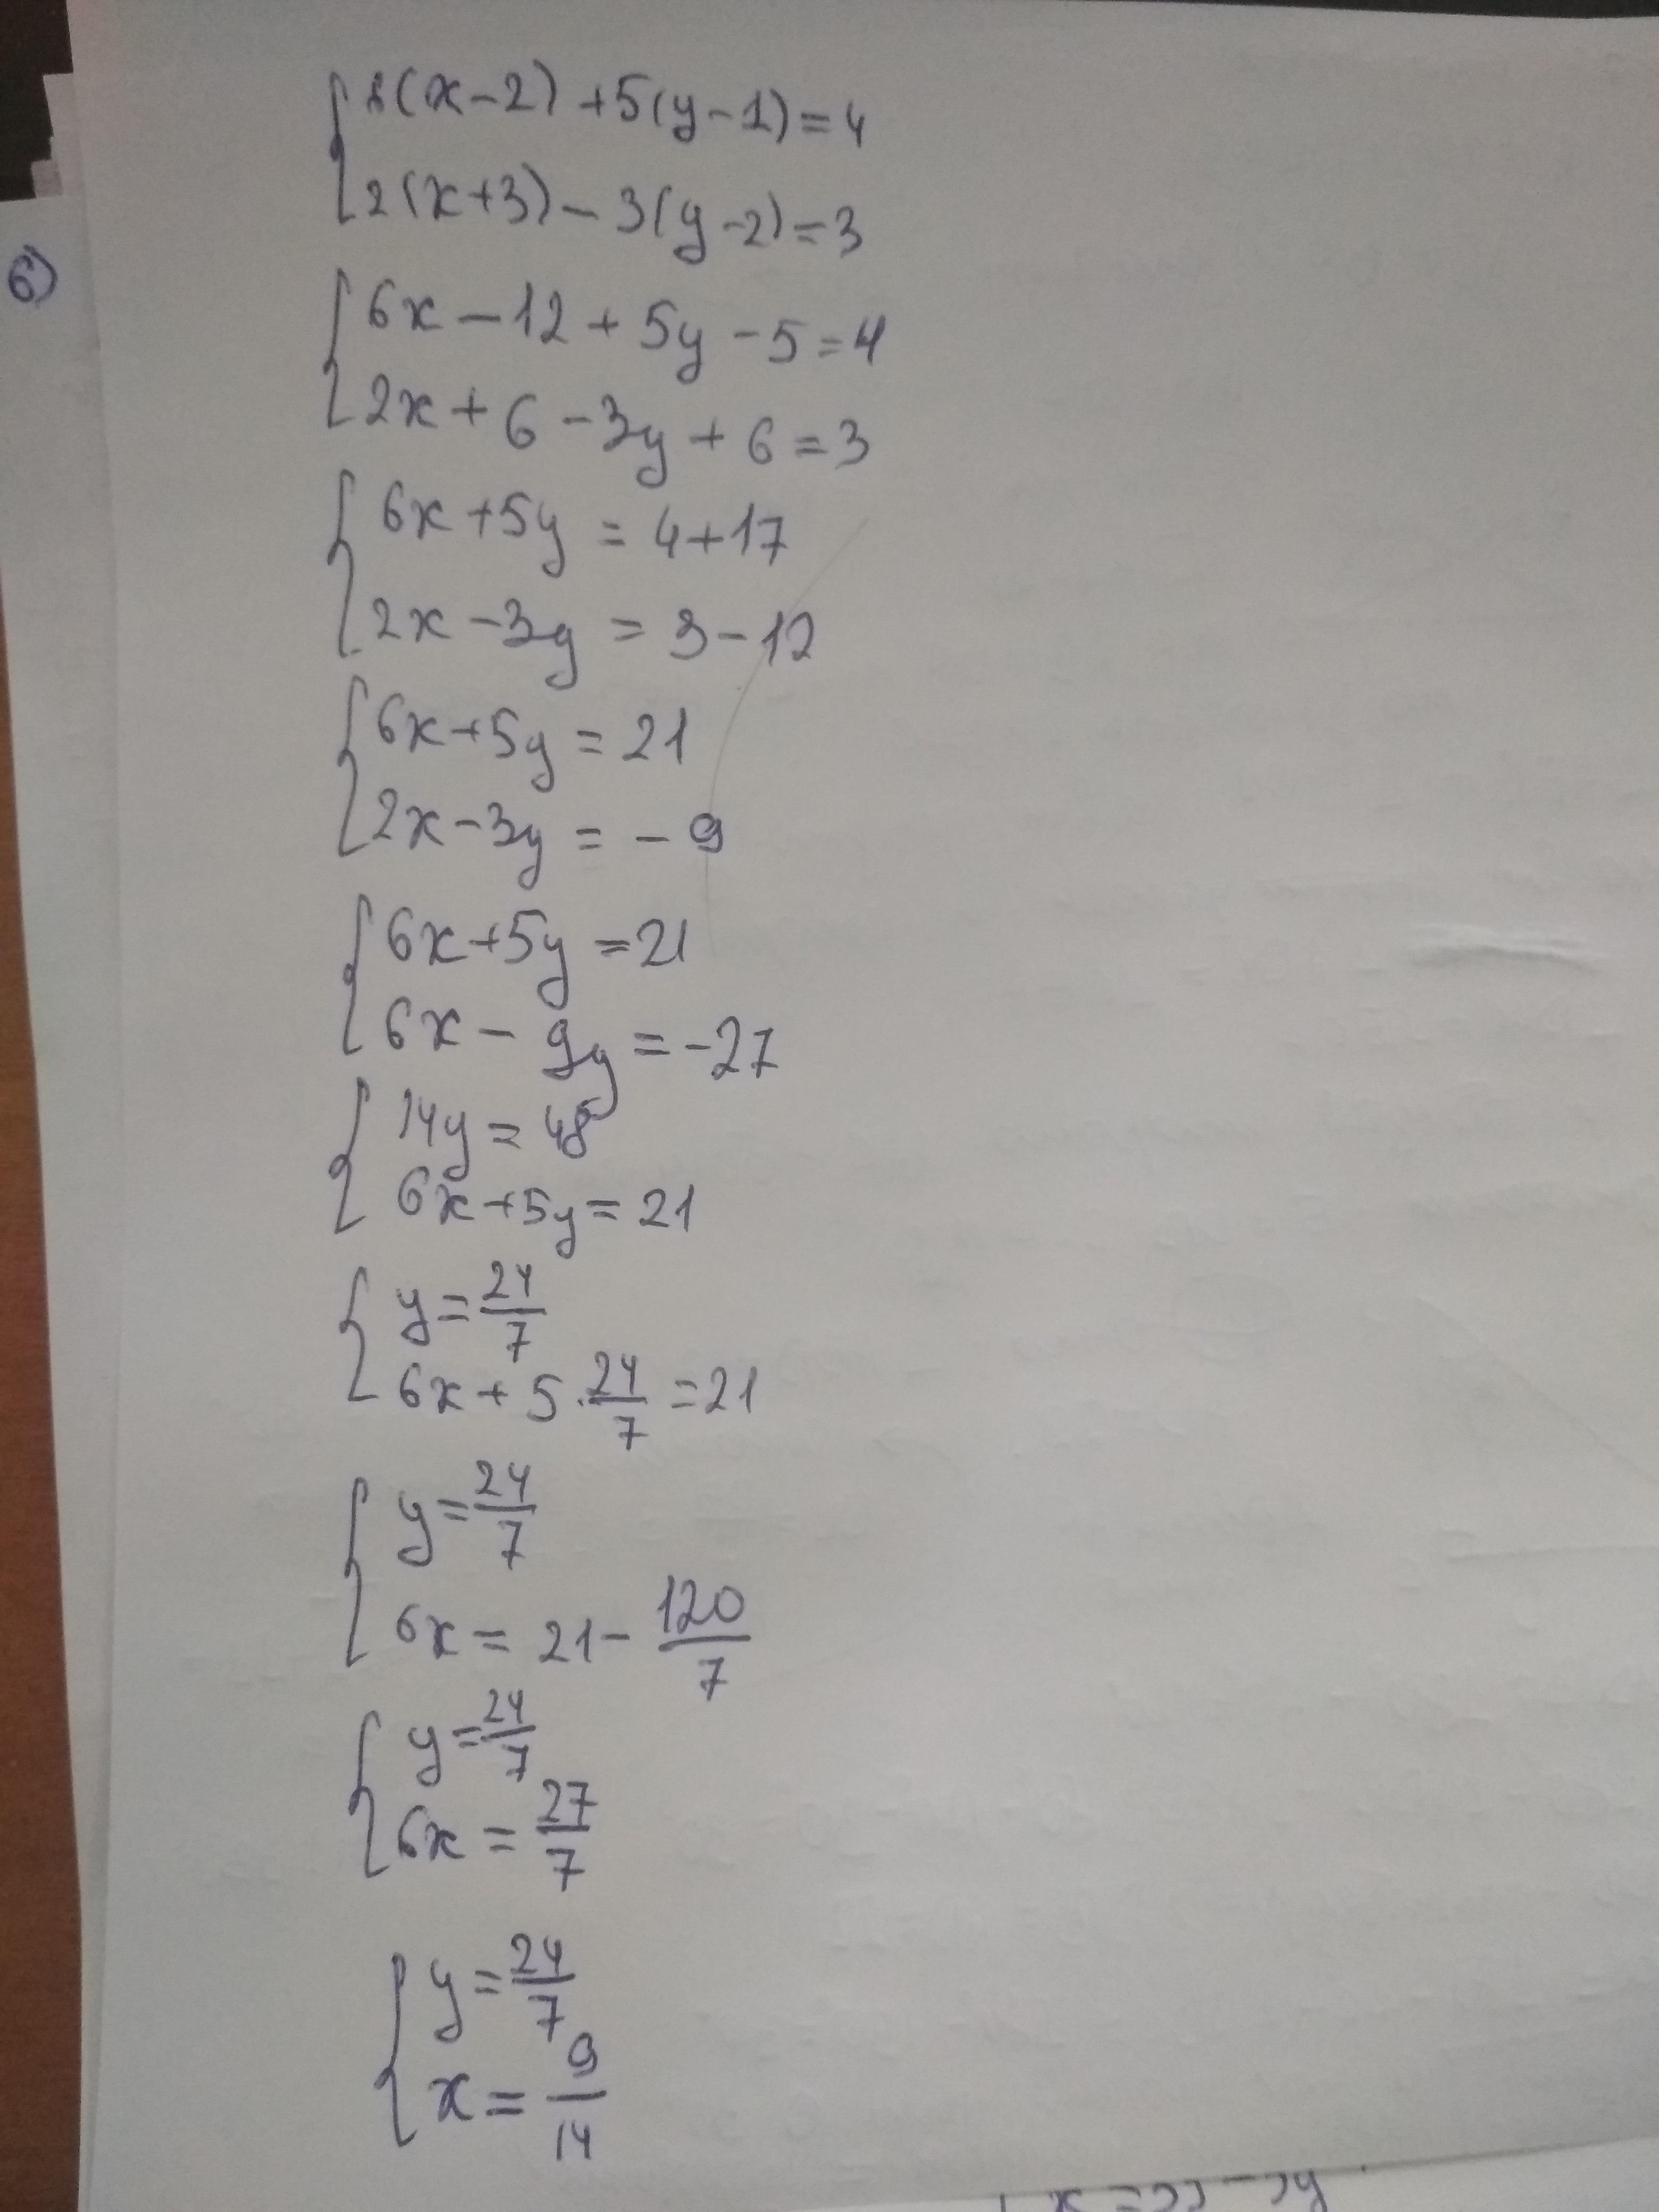 (x-2)+5(y-1)=4
2(x+3)-3(y-2)=3
б)
6x-12+5y-5=4
2x+6-3y+6=3
6x+5y=4+17
2x-3y=3-12
6x+5y=21
2x-3y=-9
6x+5y=21
6x-9y=-27
14y=48
6x+5y=21
y=24/7
6x+5·24/7=21
y=24/7
6x=21-120/7
y=24/7
6x=27/7
y=24/7
x=9/14